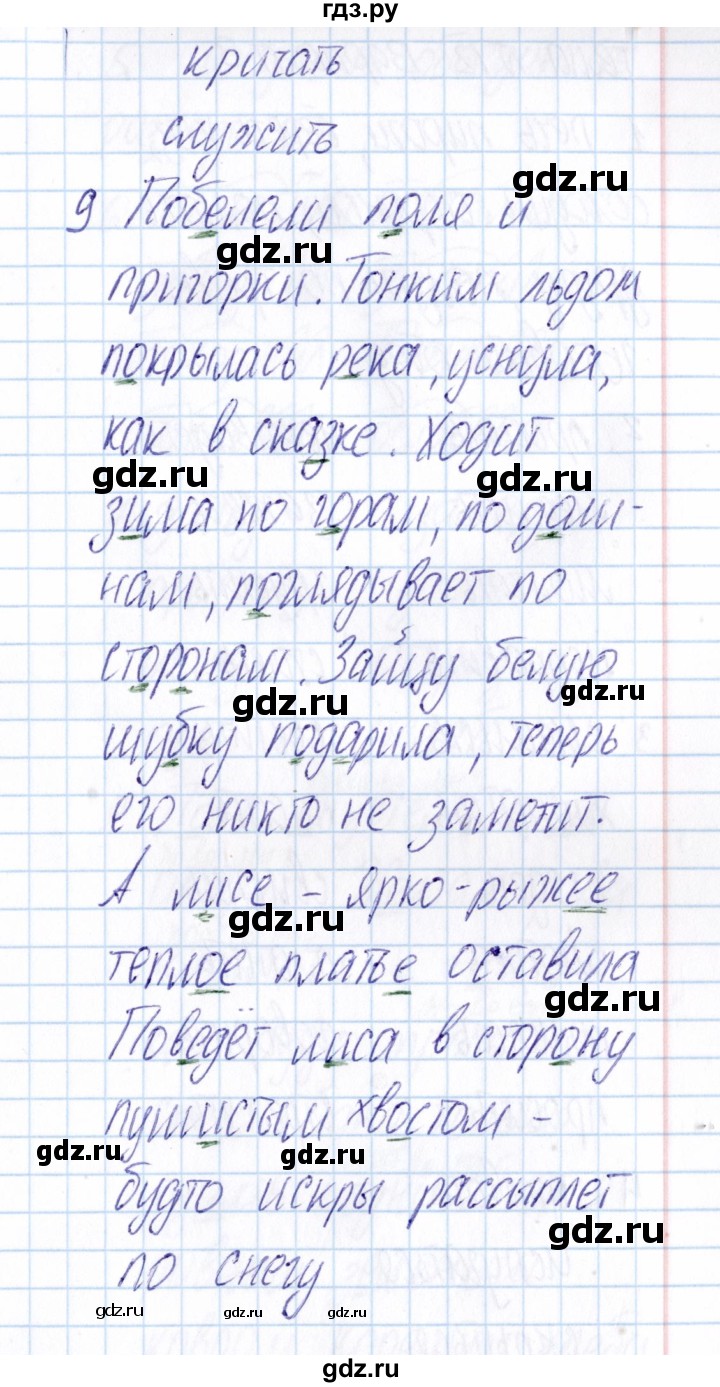 гдз.ру
кричать
служить
gdz.ru
9 Побелели поля и
gdz.ru
пригорки. Тонким льдом
покрылась река, уснула,
как в сказке. Ходит
gdz.ru gdz.ru
зима по горам, по доли-
нам, поглядывает по
сторонам. Зайцу белую
gdz.ru gdz.ru
шубку подарила, теперь
его никто не заметит.
А лисе – ярко-рыжее
gdz.ru
теплое платье оставила
gdz.ru
Поведёт лиса в сторону
пушистым хвостом –
gdz.ru gdz.ru
будто искры рассыплет
gdz.ru
по снегу
gdz.ru gdz.ru gdz.ru
gdz.ru